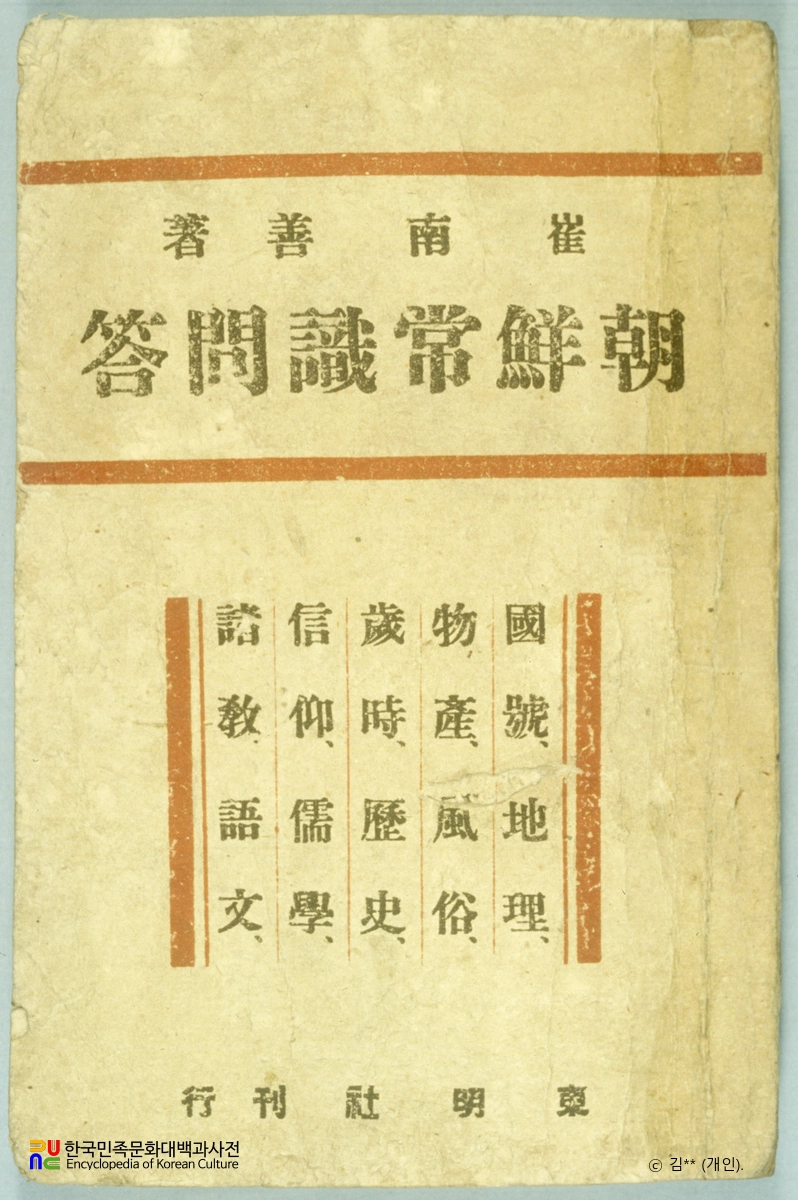 崔南善著
朝鮮常識問答
國號、地理、
物產、風俗、
歲時、歷史、
信仰、儒學、
諸敎、語文、
東明社刊行
한국민족문화대백과사전
Encyclopedia of Korean Culture
ⓒ 김** (개인).